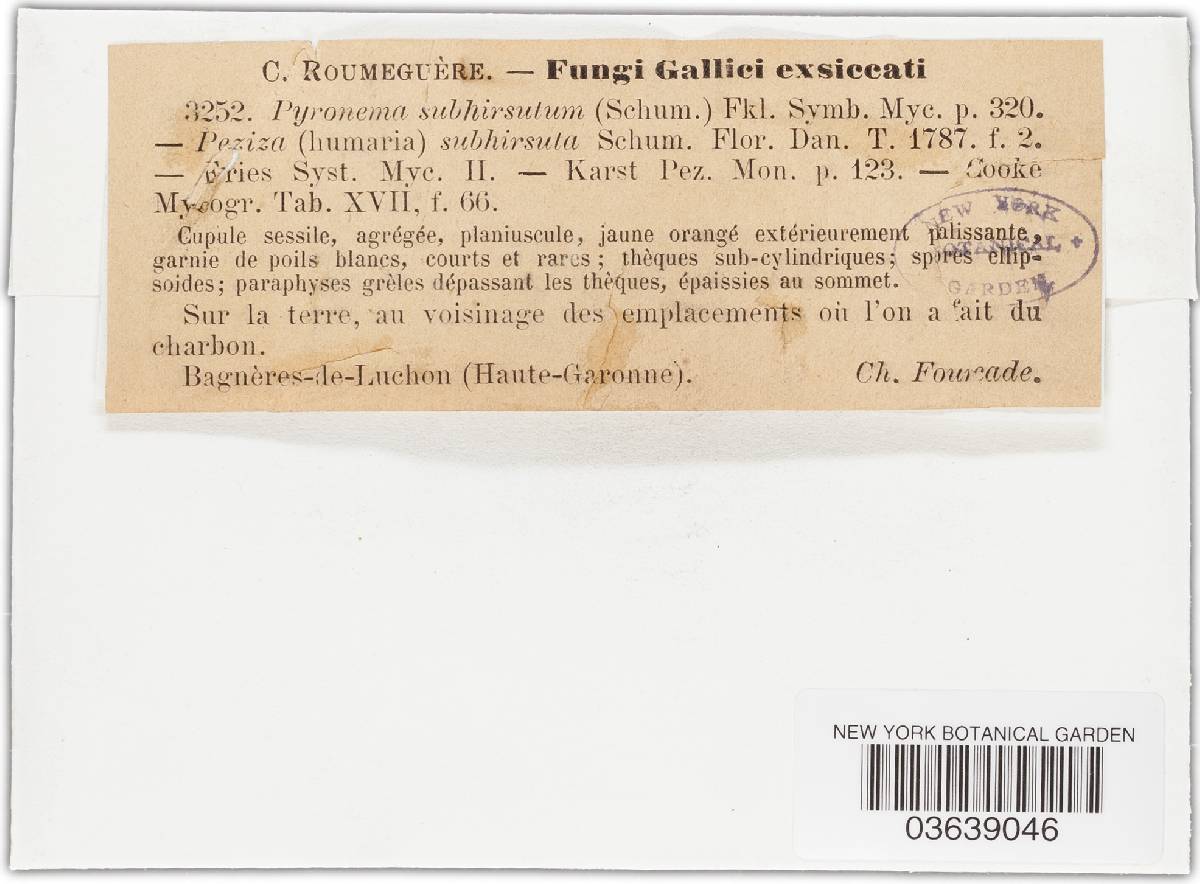 C. ROUMEGUÈRE. — Fungi Gallici exsiccati
3252. Pyronema subhirsutum (Schum.) Fkl. Symb. Myc. p. 320.
— Peziza (humaria) subhirsuta Schum. Flor. Dan. T. 1787. f. 2.
— Fries Syst. Myc. II. — Karst Pez. Mon. p. 123. — Cooke
Mycogr. Tab. XVII, f. 66.
Cupule sessile, agrégée, planiuscule, jaune orangé extérieurement pâlissante,
garnie de poils blancs, courts et rares; thèques sub-cylindriques; spores ellip-
soïdes; paraphyses grèles dépassant les thèques, épaissies au sommet.
Sur la terre, au voisinage des emplacements où l'on a fait du
charbon.
Bagnères-de-Luchon (Haute-Garonne). Ch. Fourcade.
NEW YORK
BOTANICAL +
GARDEN
NEW YORK BOTANICAL GARDEN
03639046